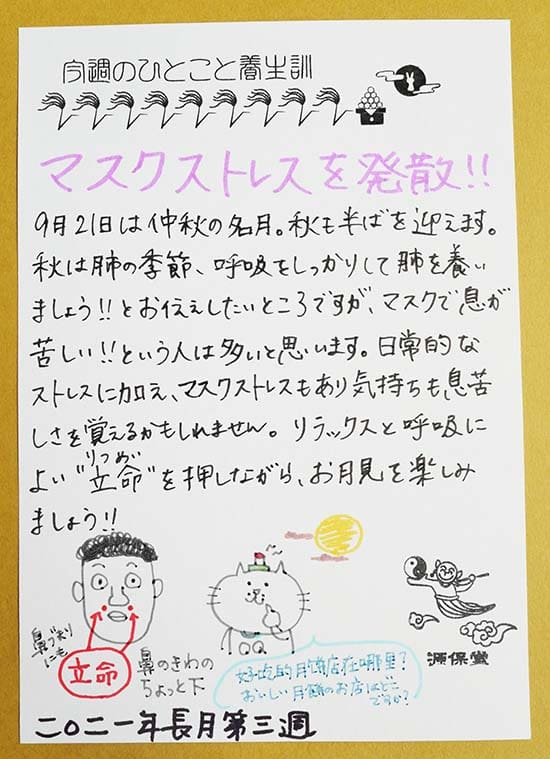 今週のひとこと養生訓
マスクストレスを発散!!
9月21日は仲秋の名月。秋も半ばを迎えます。
秋は肺の季節、呼吸をしっかりして肺を養い
ましょう!!とお伝えしたいところですが、マスクで息が
苦しい!!という人は多いと思います。日常的な
ストレスに加え、マスクストレスもあり気持ちも息苦
しさを覚えるかもしれません。リラックスと呼吸に
りつめい
よい"立命"を押しながら、お月見を楽しみ
ましょう!!
鼻づまり
にも
立命
鼻のきわの
ちょっと下
好吃的月饼店在哪里?
おいしい月餅のお店はどこ
ですか?
源保堂
二〇二一年長月第三週